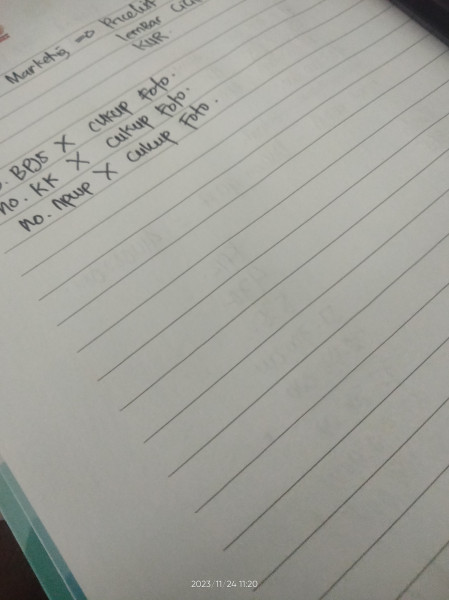 Marketig => Pricelist
lembar
KUR.
no. BPJS X cukup Foto.
no. KK X cukup Foto.
no. NPWP X cukup Foto.
2023/11/24 11:20